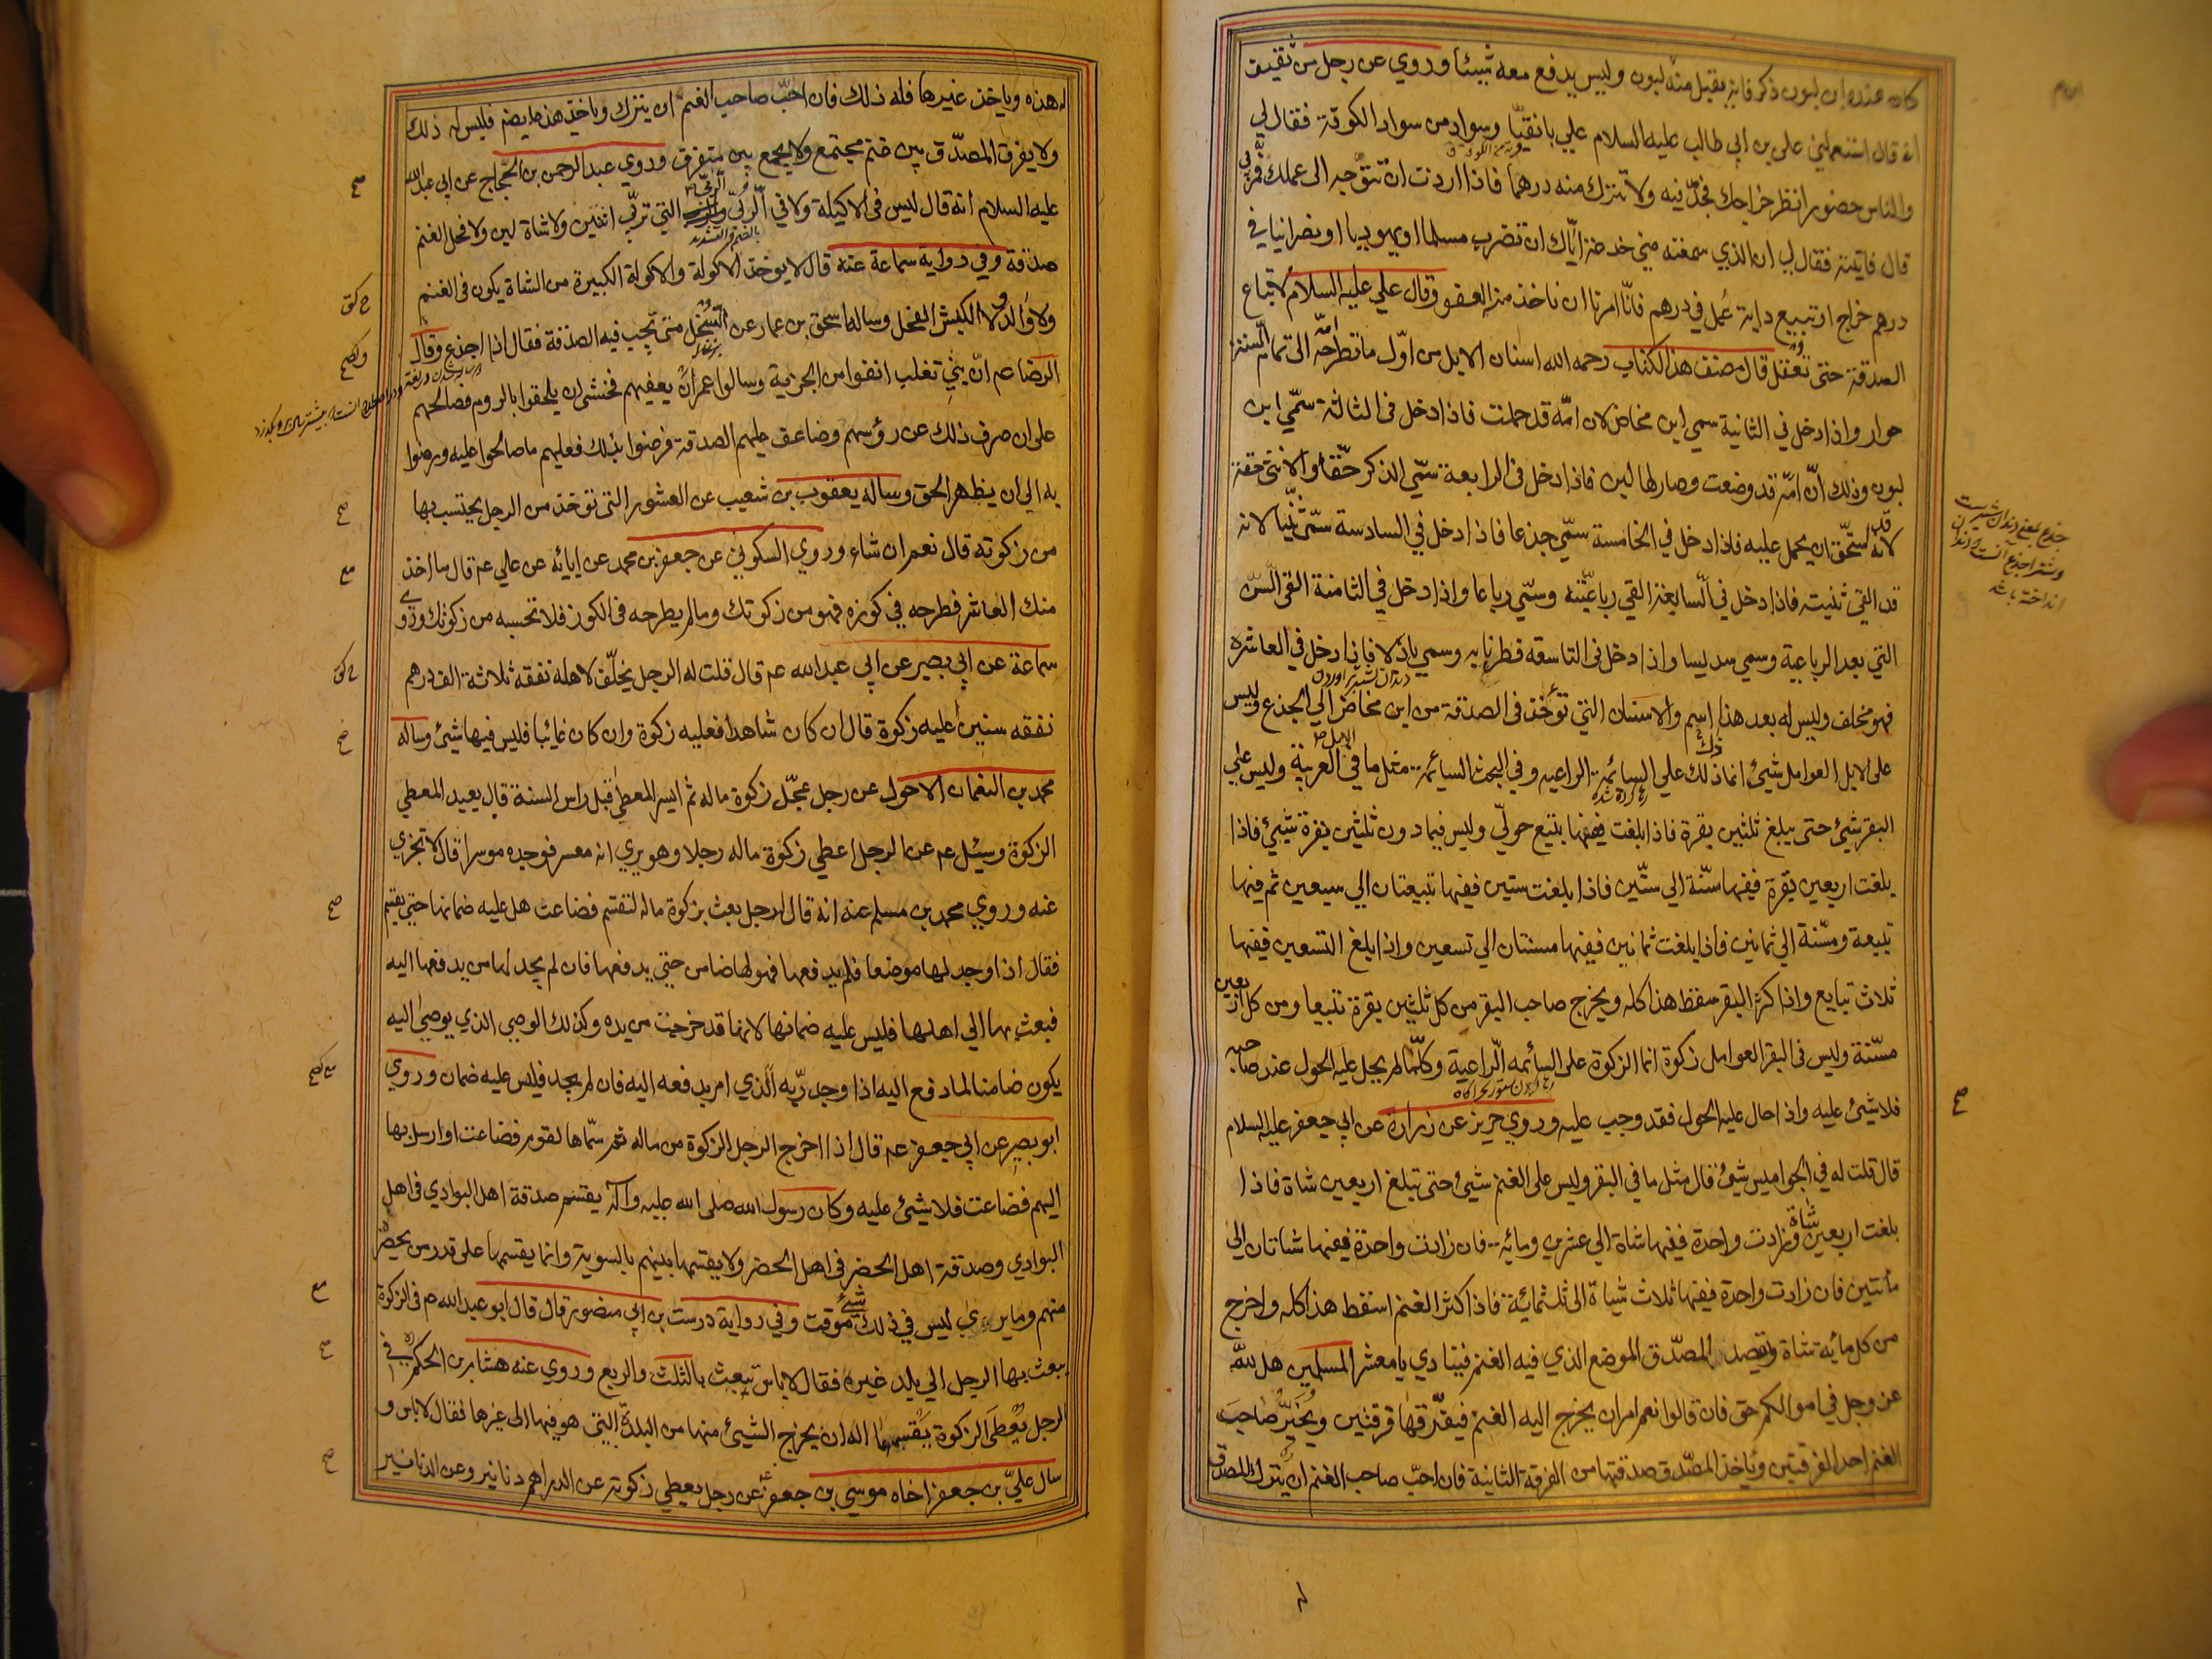 كان عنده ابن لبون ذكر فانه يقبل منه لبون وليس يدفع معه شيئا وروي عن رجل من ثقيف
انه قال استعملني علي بن ابي طالب عليه السلام علي بانقيّا وسواد من سواد الكوفة فقال لي
والناس حضور انظر خراجك فجدّ فيه ولا تترك منه درهما فاذا اردت ان تتوّجه الى عملك فمر بي
قال فاتيته فقال لي ان الذي سمعته مني خدعة ايّاك ان تضرب مسلما او يهوديا او نصرانيا في
درهم خراج او تبيع دابة عمل في درهم فانّا امرنا ان ناخذ منه العفو وقال علي عليه السلام لا تباع
الصدقة حتى تعقل قال مصنف هذا الكتاب رحمه الله اسنان الابل من اوّل ما تطرحه امّه الى تمام السنة
حوار واذا دخل في الثانية سمي ابن مخاض لان امّه قد حملت فاذا دخل في الثالثة سمّي ابن
لبون وذلك انّ امّه قد وضعت وصار لها لبن فاذا دخل في الرابعة سمّي الذكر حقّا والانثى حقة
لانه قد استحّق ان يحمل عليه فاذا دخل في الخامسة سمّي جذعا فاذا دخل في السادسة سمّي ثنيّا لانه
قد القي ثنيته فاذا دخل في السابعة القي رباعيّته وسمّي رباعا واذا دخل في الثامنة القي السّن
التي بعد الرباعية وسمي سديسا واذا دخل في التاسعة فطر نابه وسمي باذلا فاذا دخل في العاشرة
فهو مخلف وليس له بعد هذا اسم والاسنان التي تؤخذ في الصدقة من ابن مخاض الي الجذع وليس
على الابل العوامل شيئ انما ذلك علي السائمة الراعيه وفي البخت السائمه مثل ما في الابل العربية وليس علي
البقر شيئ حتى يبلغ ثلثين بقرة فاذا بلغت ففيها تبيع حولّي وليس فيما دون ثلثين بقرة شيئ فاذا
بلغت اربعين بقرة ففيها مسّنة الى ستّين فاذا بلغت ستين ففيها تبيعتان الي سبعين ثم فيها
تبيعة ومسّنة الي ثمانين فاذا بلغت ثمانين ففيها مسنتان الي تسعين واذا بلغ التسعين ففيها
ثلاث تبايع واذا كثر البقر سقط هذا كله ويخرج صاحب البقر من كل ثلثين بقرة تبيعا ومن كل اربعين
مسّنة وليس في البقر العوامل زكوة انما الزكوة على السائمه الراعية وكلّما لم يحل عليه الحول عند صاحبه
فلا شئ عليه واذا حال عليه الحول فقد وجب عليه وروي حريز عن زرارة عن ابي جعفر عليه السلام
قال قلت له في الجواميس شيئ قال مثل ما في البقر وليس على الغنم شيئ حتى تبلغ اربعين شاة فاذا
بلغت اربعين شاة وزادت واحدة ففيها شاة الي عشرين ومائة فان زادت واحدة ففيها شاتان الي
مأتين فان زادت واحدة ففيها ثلاث شياة الى ثلثمائة فاذا كثر الغنم اسقط هذا كله واخرج
من كل مائة شاة ويقصد المصدّق الموضع الذي فيه الغنم فينادي يا معشر المسلمين هل لله
عز وجل في اموالكم حق فان قالوا نعم امر ان يخرج اليه الغنم فيفّرقها فرقتين ويخيّر صاحب
الغنم احد الفرقتين وياخذ المصّدق صدقتها من الفرقة الثانية فان احبّ صاحب الغنم ان يترك المصدق
له هذه وياخذ غيرها فله ذلك فان احّب صاحب الغنم ان يترك وياخذ هذه ايضم فليس له ذلك
ولا يفرق المصدّق بين غنم مجتمع ولا يجمع بين متفرق وروي عبد الرحمن بن الحّجاج عن ابي عبد الله
عليه السلام انه قال ليس في الاكيلة ولا في الرّبّى التي تربّي اثنين ولا شاة لبن ولا فحل الغنم
صدقة وفي رواية سماعة عنه قال لا يوخذ الاكولة والاكولة الكبيرة من الشاة يكون في الغنم
ولا والد ولا الكبش الفحل وساله اسحق بن عمار عن السّخل متى تّجب فيه الصدقة فقال اذا اجذع وقال
الرضا عم انّ بني تغلب انفوا من الجزية وسالوا عمر ان يعفيهم فخشي ان يلحقوا بالروم فصالحهم
على ان صرف ذلك عن رؤسهم وضاعف عليهم الصدقة فرضوا بذلك فعليهم ما صالحوا عليه ورضوا
به الي ان يظهر الحق وساله يعقوب بن شعيب عن العشور التي توخذ من الرجل يحتسب بها
من زكوته قال نعم ان شاء وروي السكوني عن جعفر بن محمد عن ابائه عن علي عم قال ما اخذ
منك العاشر فطرحه في كوزه فهو من زكوتك وما لم يطرحه في الكوز فلا تحسبه من زكوتك وروى
سماعة عن ابي بصير عن ابي عبد الله عم قال قلت له الرجل يخلّف لاهله نفقه ثلاثة الف درهم
نفقه سنين أعليه زكوة قال ان كان شاهدا فعليه زكوة وان كان غائبا فليس فيها شيئ وساله
محمد بن النعمان الاحول عن رجل عجّل زكوة ماله ثم ايسر المعطى قبل راس السنة قال يعيد المعطي
الزكوة وسئل عم عن الرجل اعطي زكوة ماله رجلا وهو يري انه معسر فوجده موسرا قال لا تجزي
عنه وروي محمد بن مسلم عنه انه قال الرجل بعث بزكوة ماله لتقسم فضاعت هل عليه ضمانها حتى يقسم
فقال اذا وجد لها موضعا فلم يدفعها فهو لها ضامن حتى يدفعها فان لم يجد لها من يدفعها اليه
فبعث بها الي اهلها فليس عليه ضمانها لانها قد خرجت من يده وكذلك الوصي الذي يوصي اليه
يكون ضامنا لما دفع اليه اذا وجد ربّه الّذي امر بدفعه اليه فان لم يجد فليس عليه ضمان وروي
ابو بصير عن ابي جعفر عم قال اذا اخرج الرجل الزكوة من ماله ثم سمّاها لقوم فضاعت او ارسل بها
اليهم فضاعت فلا شيئ عليه وكان رسول الله صلى الله عليه وآله يقسم صدقة اهل البوادي في اهل
البوادي وصدقة اهل الحضر في اهل الحضر ولا يقسمها بينهم بالسوية وانما يقسمها على قدر من يحضره
منهم وما يري ليس في ذلك شيئ موقت وفي رواية درست بن ابي منصور قال قال ابو عبد الله عم في الزكوة
يبعث بها الرجل الي بلد غيره فقال لا باس تبعث بالثلث والربع وروي عنه هشام بن الحكم في
الرجل يُعْطَى الزكوة يقسمها اله ان يخرج الشيئ منها من البلدة التي هو فيها الى غيرها فقال لا باس و
سال عليّ بن جعفر اخاه موسي بن جعفر عن رجل يعطي زكوته عن الدراهم دنانير وعن الدنانير